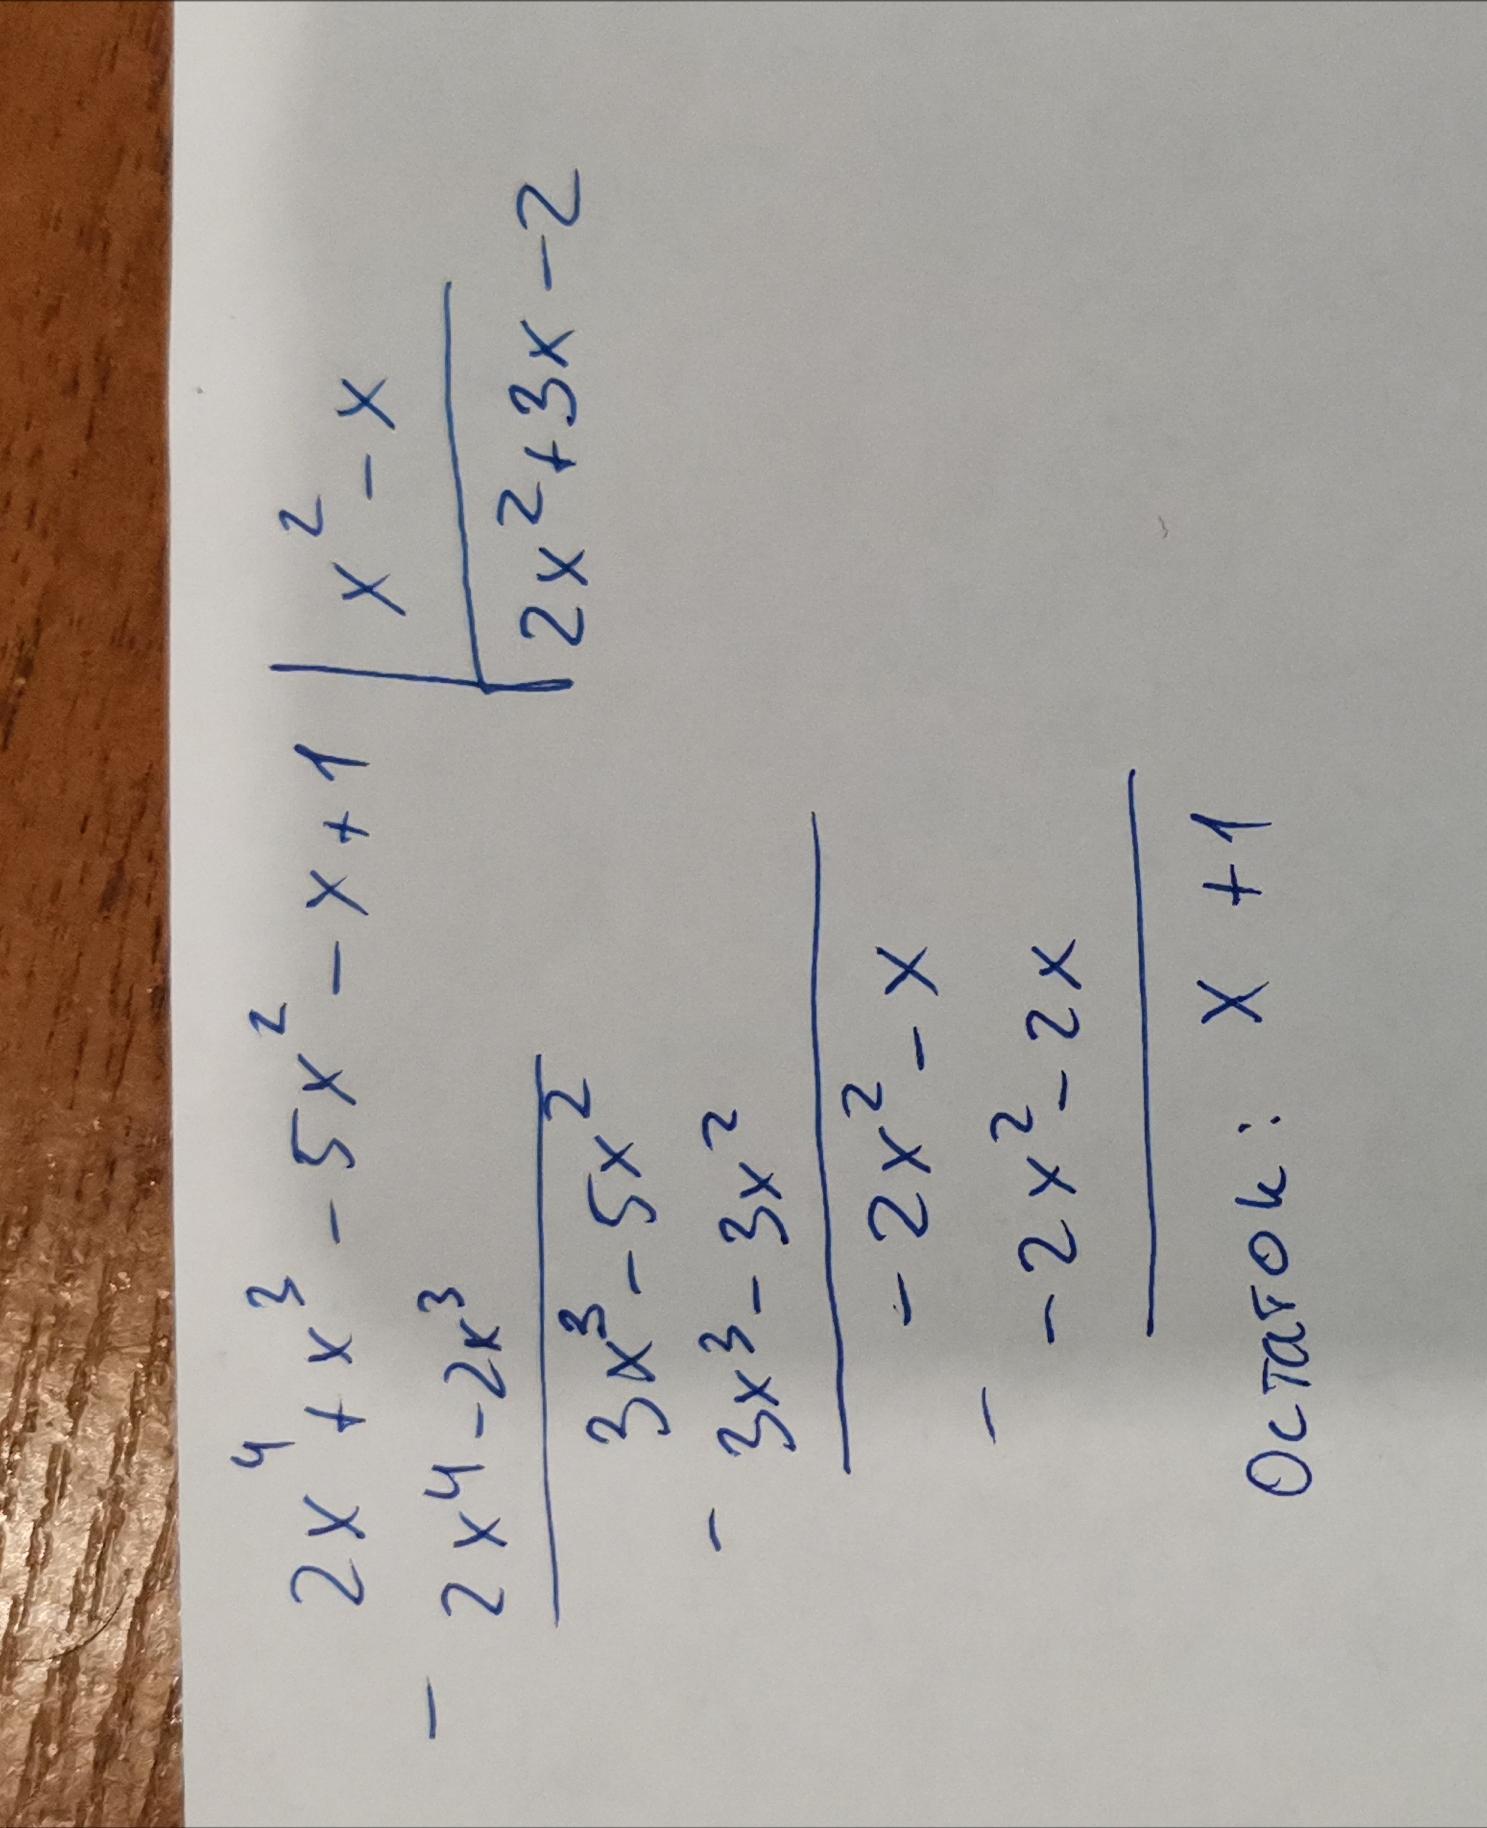 2x⁴ + x³ - 5x² - x + 1 | x² - x
- 2x⁴ - 2x³ | 2x² + 3x - 2
3x³ - 5x²
- 3x³ - 3x²
- 2x² - x
- - 2x² - 2x
Остаток: x + 1